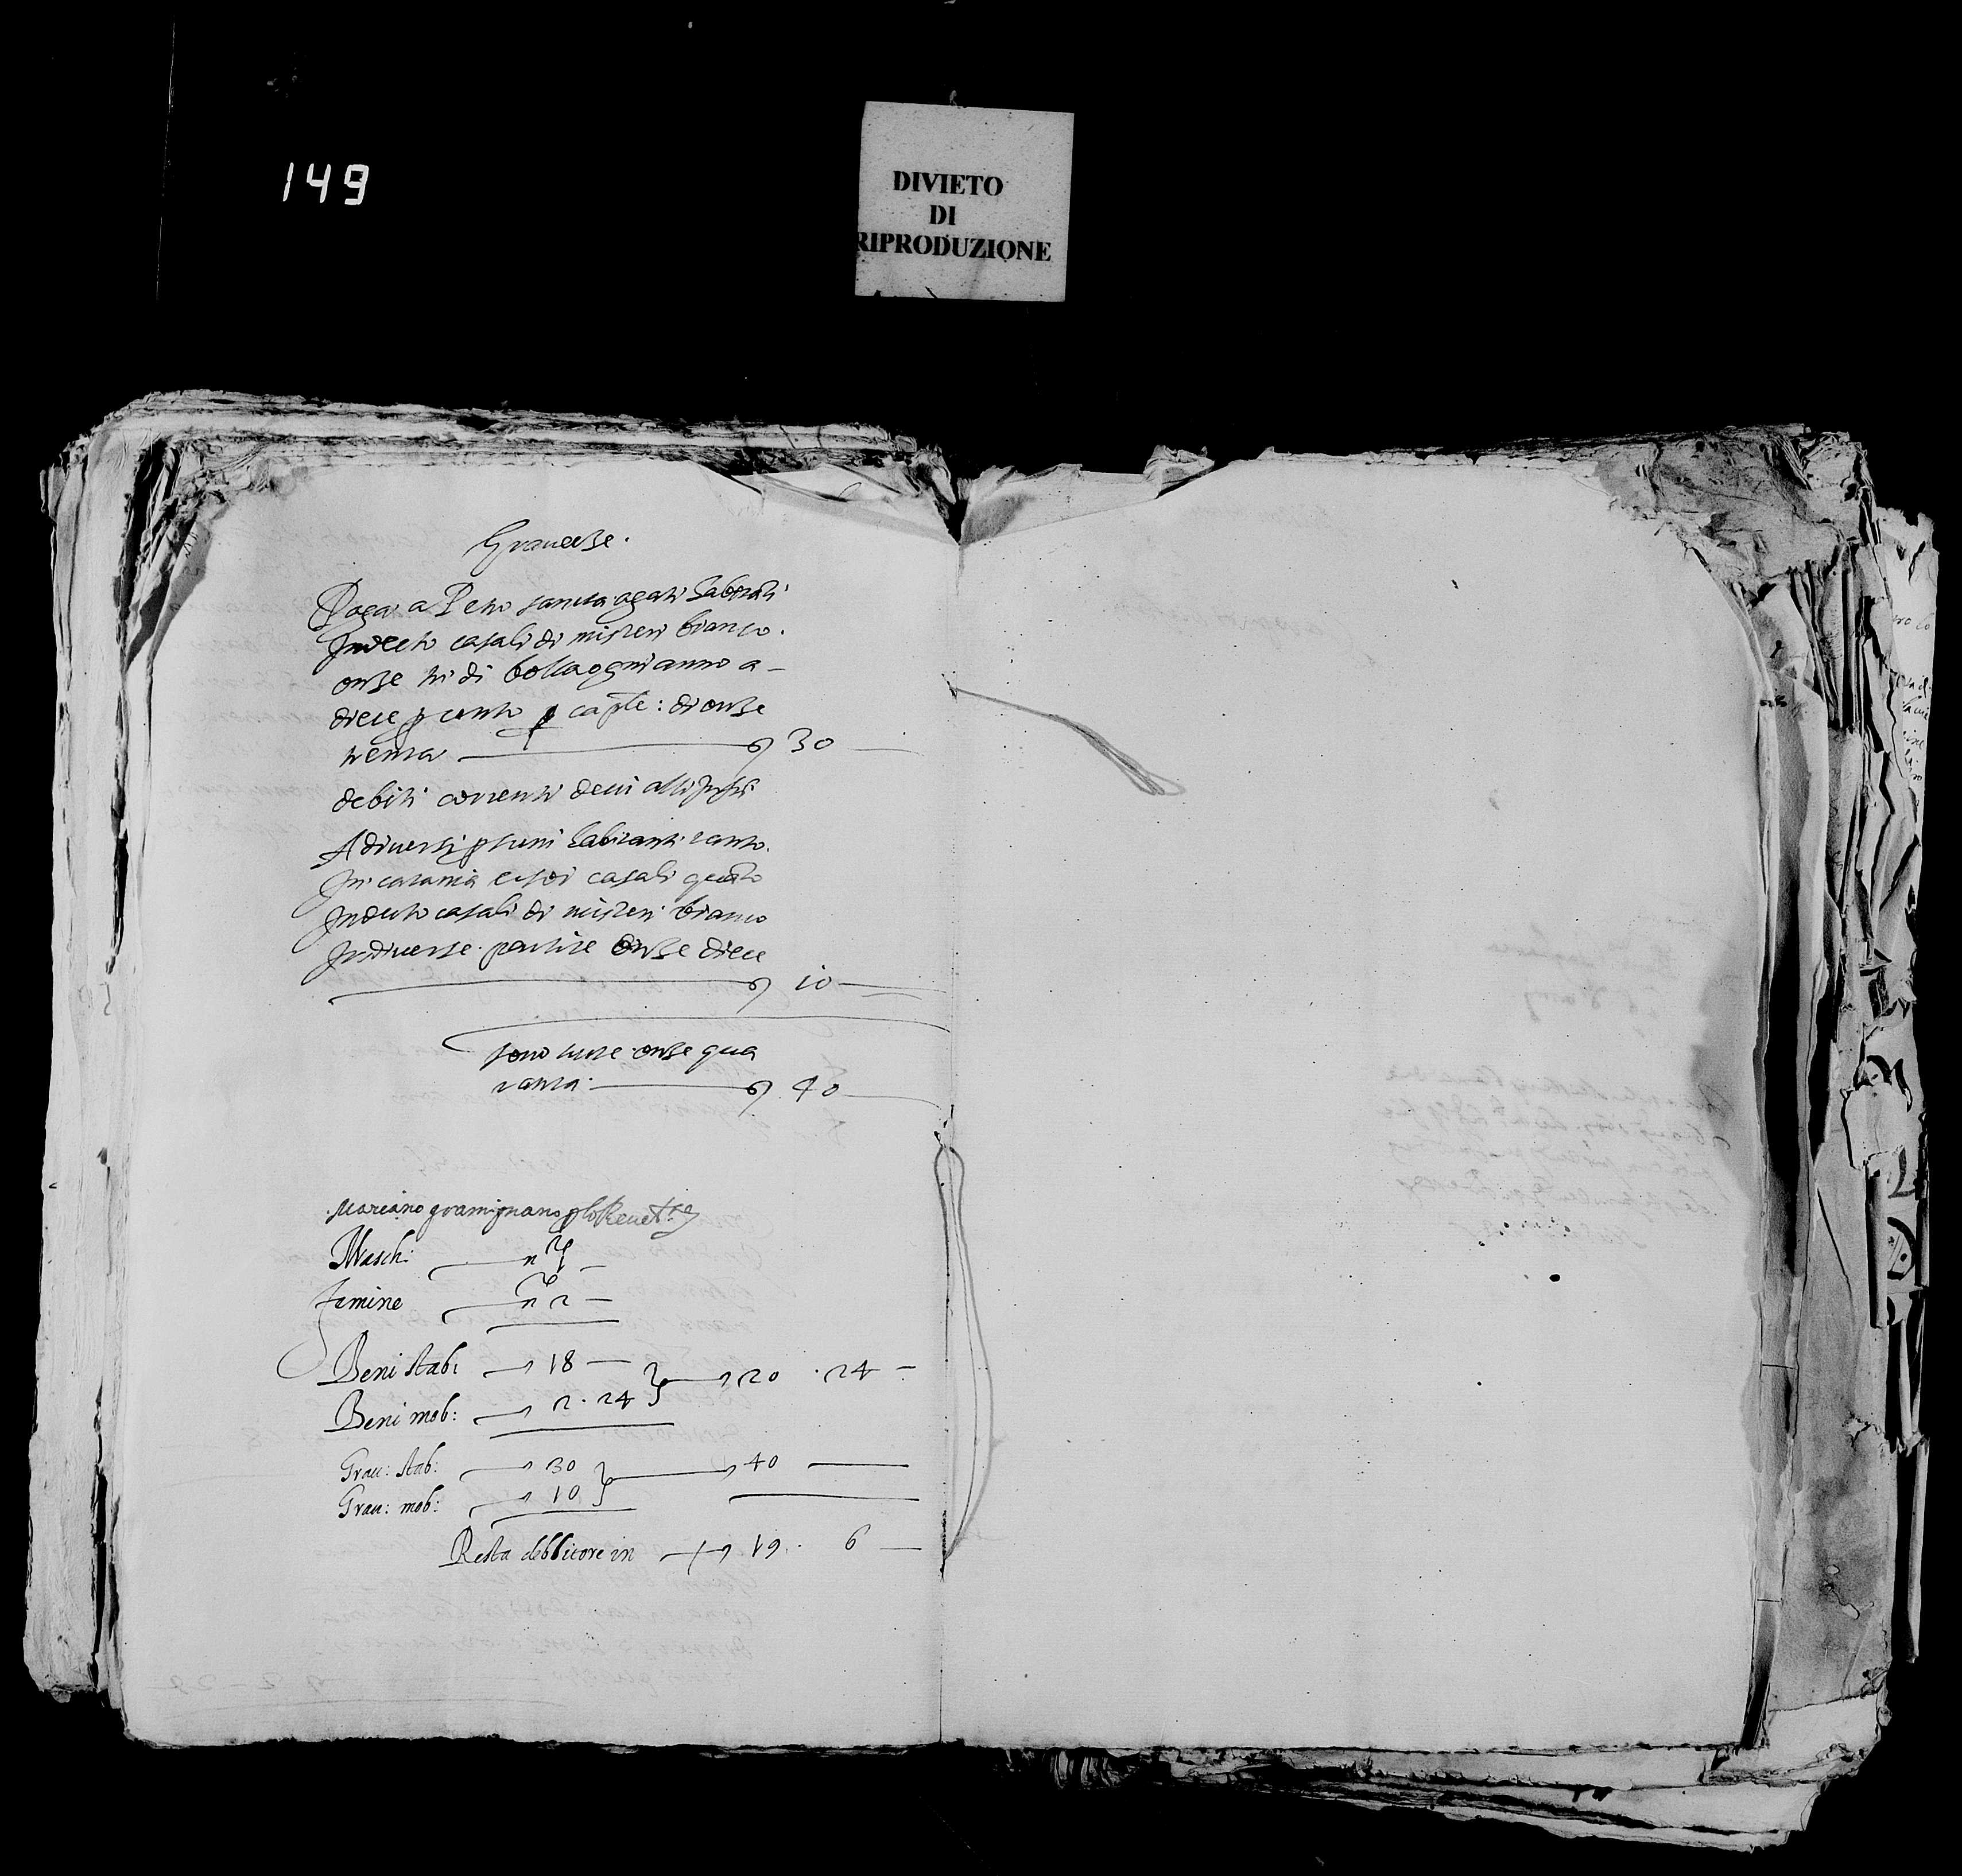 149
DIVIETO
DI
RIPRODUZIONE
Gravezze.
Paga a Petro santa agati habitati
In decto casali di misteri bianco.
onze tri di bolla ogni anno a
diece p cento p caple: di onze
trenta 30
debiti correnti devi all'infrti
A diversi psuni habitanti tanto.
In catania et soi casali quanto
In decto casali di misteri bianco
In diverse partite onze diece
10
sono tutte onze qua
ranta 40
Mariano gramignano
Masch: n
femine n 2
Beni stabi 18
20 . 24
Beni mob: 2 . 24
Grau: stab: 30
40
Grau: mob: 10
Resta debbitore in 19 . 6